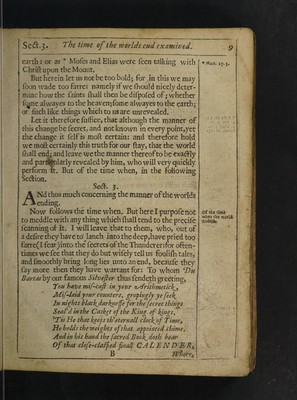 Sect.3. The time of the worlds end examined. 9
earth: or as * Moses and Elias were seen talking with
* Mat. 17.3.
Christ upon the Mount.
But herein let us not be too bold; for in this we may
soon wade too farre: namely if we should nicely deter-
mine how the saints shall then be disposed of; whether
some alwayes to the heaven; some alwayes to the earth;
or such like things which to us are unrevealed.
Let it therefore suffice, that although the manner of
this change be secret, and not known in every point, yet
the change it self is most certain: and therefore hold
we most certainly this truth for our stay, that the world
shall end; and leave we the manner thereof to be exactly
and particularly revealed by him, who will very quickly
perform it. But of the time when, in the following
Section.
Sect. 3.
ANd thus much concerning the manner of the worlds
ending.
Now follows the time when. But here I purpose not
Of the time when the world
to meddle with any thing which shall tend to the precise
scanning of it. I will leave that to them, who, out of
a desire they have to lanch into the deep, have pried too
farre (I fear) into the secrets of the Thunderer: for often-
times we see that they do but wisely tell us foolish tales,
and smoothly bring long lies unto an end, because they
say more then they have warrant for: To whom Du
Bartas by our famous Silvester thus sendeth greeting,
You have mis-cast in your Arithmetick,
Mis-laid your counters, gropingly ye seek
In nights black darknesse for the secret things
Seal'd in the Casket of the King of kings.
'Tis He that keeps th'eternall clock of Time,
He holds the weights of that appointed chime,
And in his hand the sacred Book doth bear
Of that close-clasped finall CALENDER,
B Where,